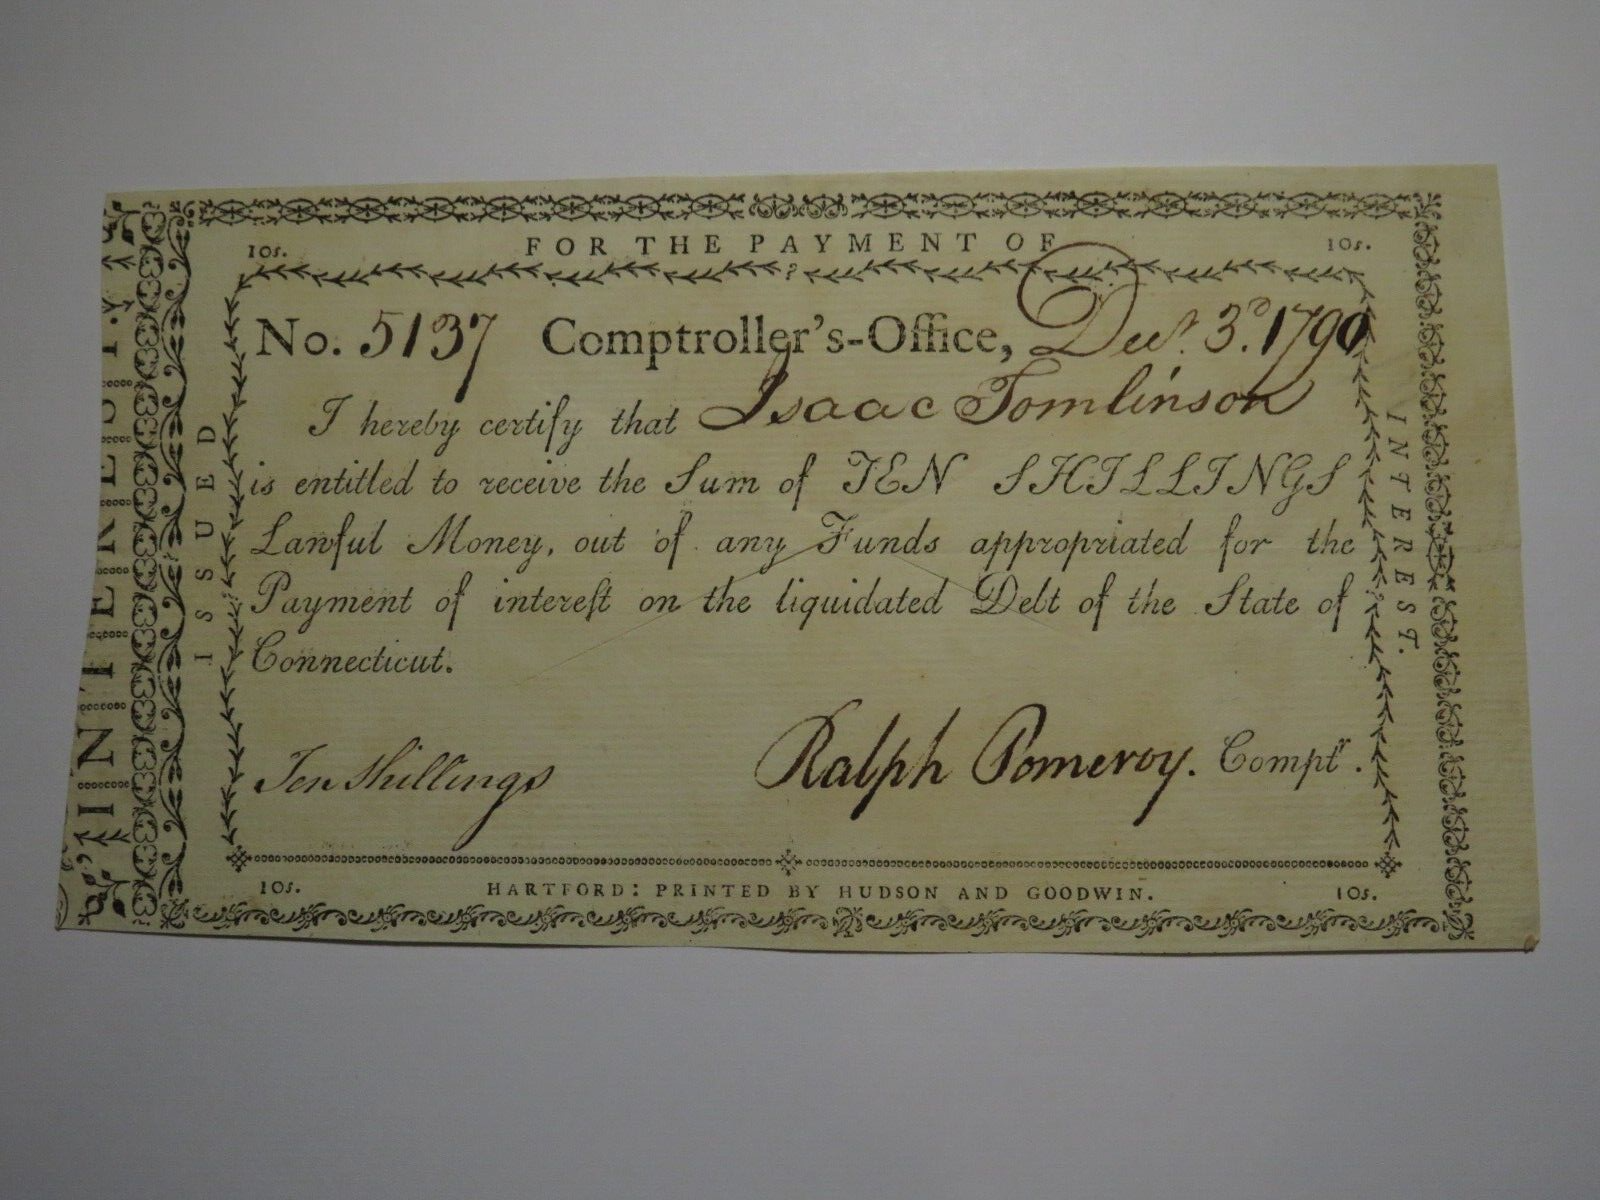 FOR THE PAYMENT OF
10s. 10s.
No. 5137 Comptroller's-Office, Decr. 3d. 1790
I hereby certify that Isaac Tomlinson
is entitled to receive the Sum of TEN SHILLINGS
Lawful Money, out of any Funds appropriated for the
Payment of intereſt on the liquidated Debt of the State of
Connecticut.
Ten Shillings Ralph Pomeroy. Comptr.
10s. HARTFORD: PRINTED BY HUDSON AND GOODWIN. 10s.
ISSUED
INTEREST.